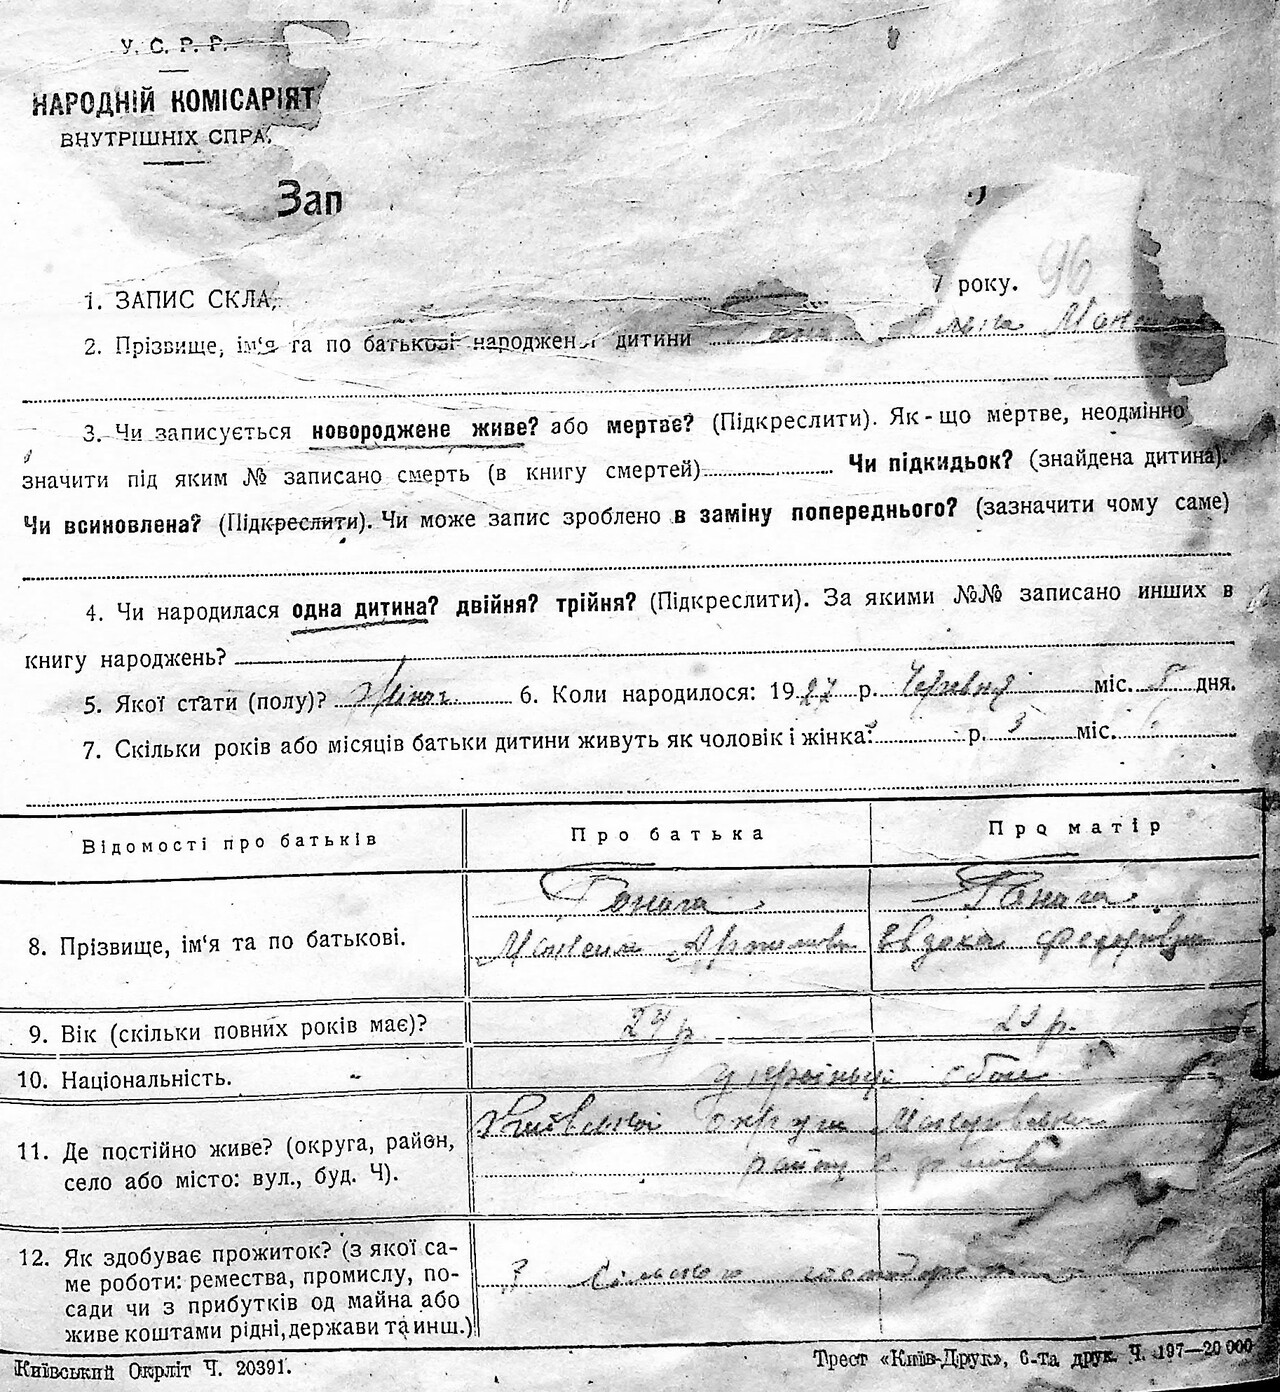 У. С. Р. Р.
НАРОДНІЙ КОМІСАРІЯТ
ВНУТРІШНІХ СПРА
Зап
96
1. ЗАПИС СКЛА
7 року.
2. Прізвище, ім‘я та по батькові народженої дитини
3. Чи записується новороджене живе? або мертве? (Підкреслити). Як-що мертве, неодмінно
значити під яким № записано смерть (в книгу смертей) Чи підкидьок? (знайдена дитина).
Чи всиновлена? (Підкреслити). Чи може запис зроблено в заміну попереднього? (зазначити чому саме)
4. Чи народилася одна дитина? двійня? трійня? (Підкреслити). За якими №№ записано инших в
книгу народжень?
5. Якої стати (полу)? жіноч. 6. Коли народилося: 1927 р. Червня міс. 5 дня.
7. Скільки років або місяців батьки дитини живуть як чоловік і жінка: р. 5 міс.
Відомості про батьків Про батька Про матір
8. Прізвище, ім‘я та по батькові.
Максим Евдока Федорівна
9. Вік (скільки повних років має)? 24 р. р.
10. Національність.
11. Де постійно живе? (округа, район,
село або місто: вул., буд. Ч).
Київської округи Макарівського
району с.
12. Як здобуває прожиток? (з якої са-
ме роботи: ремества, промислу, по-
сади чи з прибутків од майна або
живе коштами рідні, держави та инш.)
З сільського господарства
Київський Окрліт Ч. 20391.
Трест «Київ-Друк», 6-та друк. Ч. 197—20 000